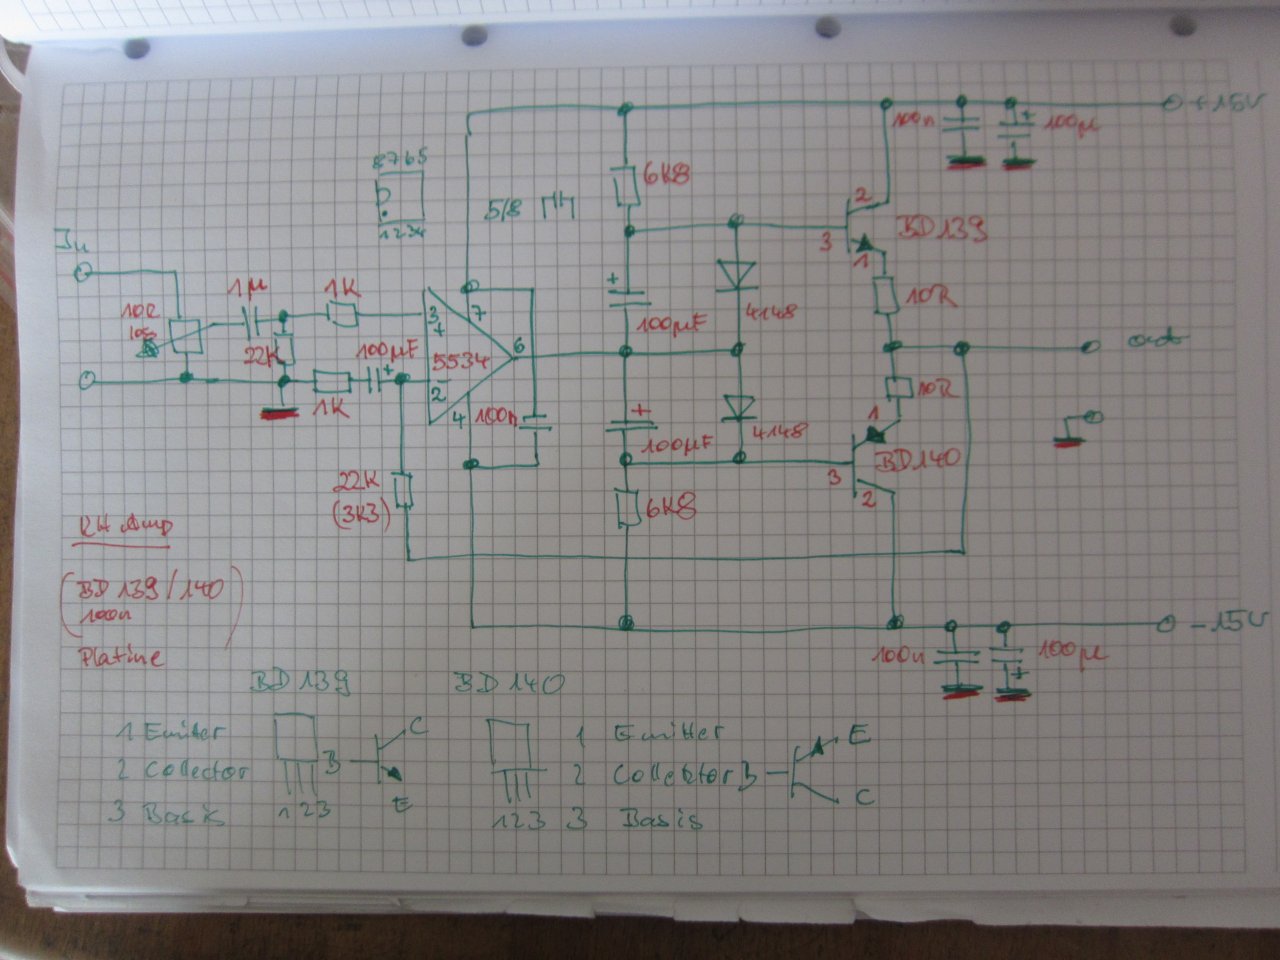 +15V
100n
100µ
8765
6K8
1234
5/8
2
BD139
3
1
In
1µ
1K
10R
3
+
7
100µF
4148
22K
100µF
5534
6
out
1K
2
4
100n
100µF
4148
10R
1
BD140
3
2
22K
(3K3)
6K8
KH Amp
(BD139/140
100n)
Platine
-15V
100n
100µ
+
BD139
BD140
1 Emitter
2 Collector
3 Basis
123
B
C
E
1 Emitter
2 Collektor
3 Basis
123
B
E
C